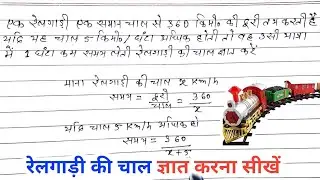 एक रेलगाड़ी एक समान चाल से 360 किमी० की दूरी तय करती है
यदि यह चाल 5 किमी०/घंटा अधिक होती तो वह उसी यात्रा
में 1 घंटा कम समय लेती रेलगाड़ी की चाल ज्ञात करें
माना रेलगाड़ी की चाल x km/h
समय = दूरी/चाल = 360/x
यदि चाल 5 km/h अधिक हो
समय = 360/x+5
रेलगाड़ी की चाल ज्ञात करना सीखें